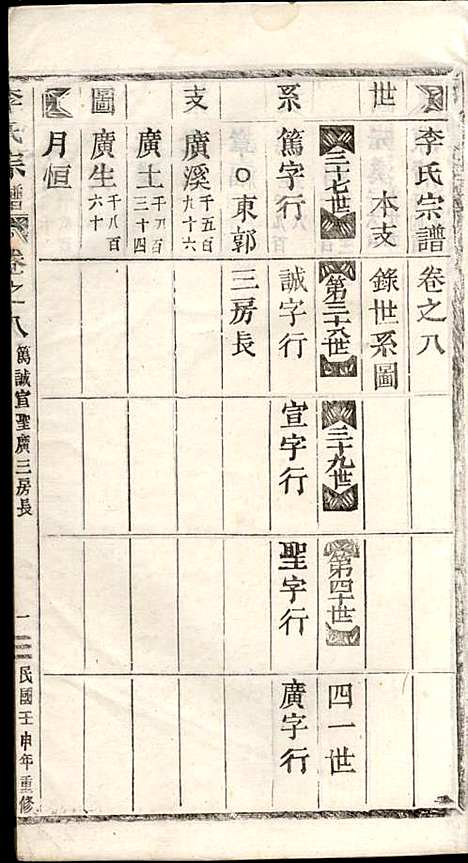 李氏宗譜卷之八
世系支圖
本支錄世系圖
三十七世 第三十八世 三十九世 第四十世 四一世
篤字行 誠字行 宣字行 聖字行 廣字行
○東郭 三房長
廣溪 千五百九十六
廣土 百三十四
廣生 千八百六十
月恒
李氏宗譜 卷之八 篤誠宣聖廣三房長 一 民國壬申年重修